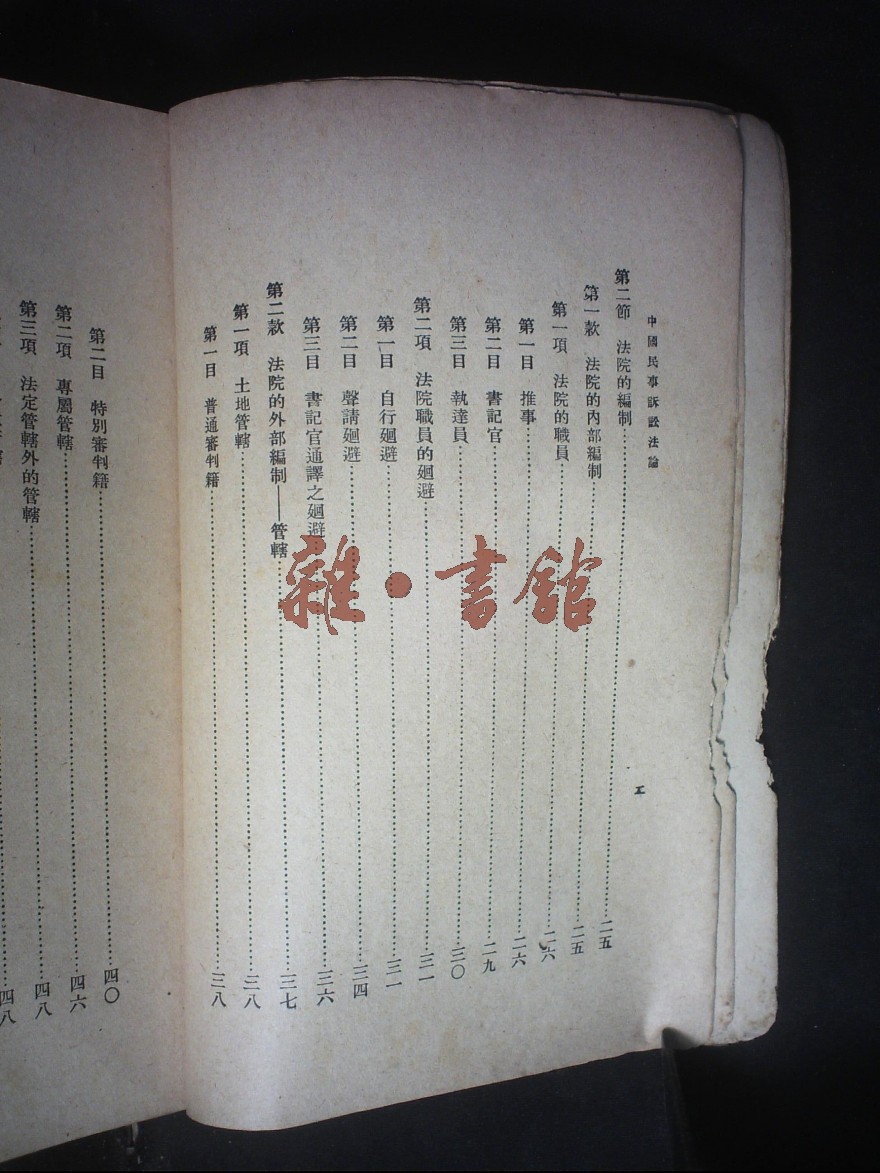 中國民事訴訟法論
第二節　法院的編制……二五
第一款　法院的內部編制……二五
第一項　法院的職員……二六
第一目　推事……二六
第二目　書記官……二九
第三目　執達員……三〇
第二項　法院職員的廻避……三一
第一目　自行廻避……三一
第二目　聲請廻避……三四
第三目　書記官通譯之廻避……三六
第二款　法院的外部編制——管轄……三七
第一項　土地管轄……三八
第一目　普通審判籍……三八
第二目　特別審判籍……四〇
第二項　專屬管轄……四六
第三項　法定管轄外的管轄……四八
四八
雜·書館